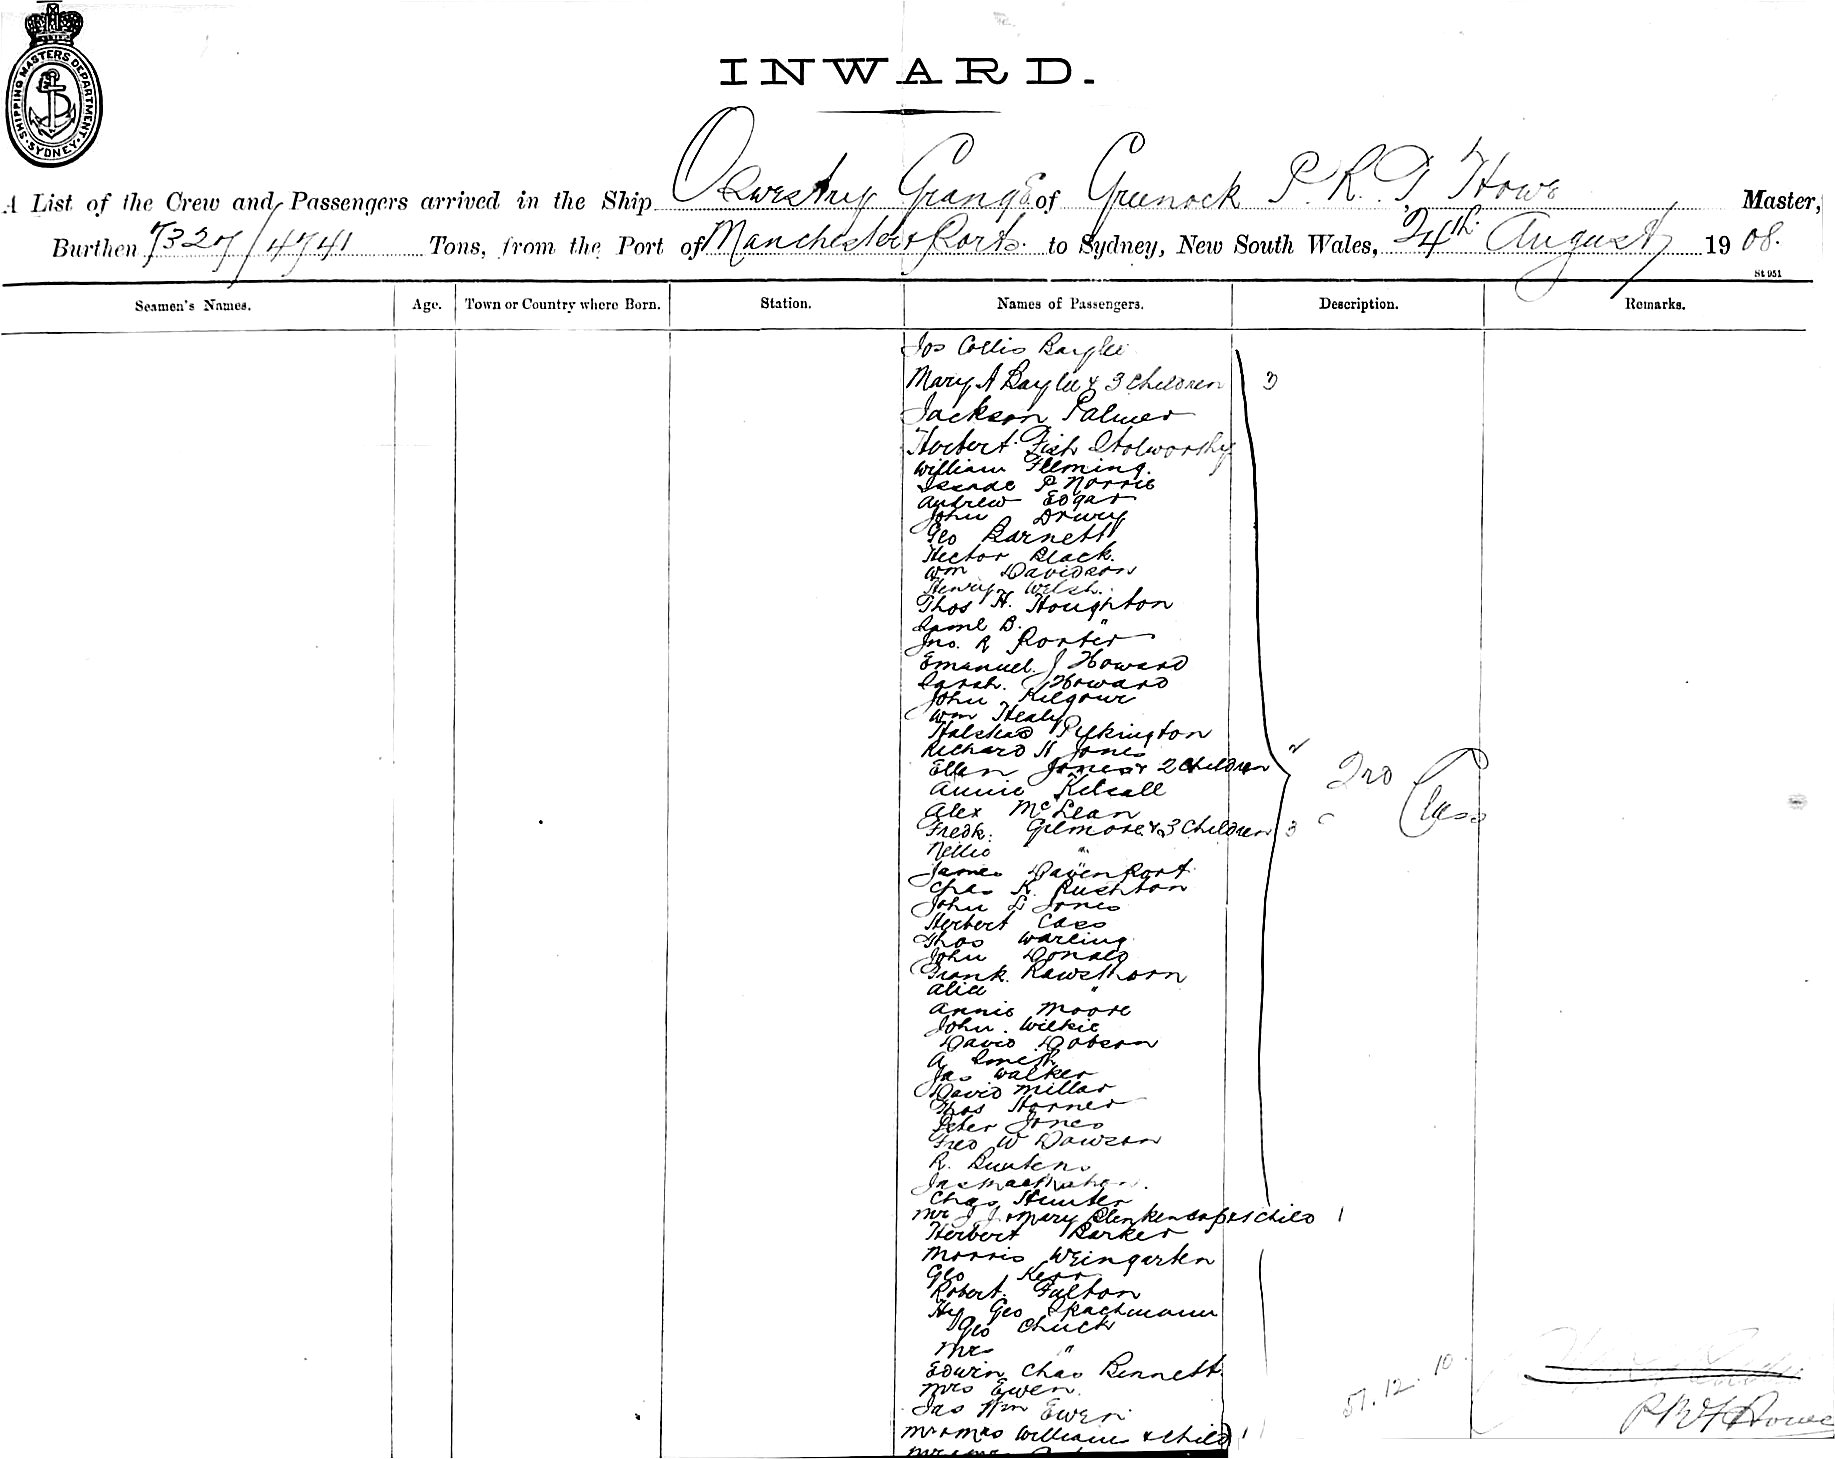 SHIPPING MASTERS DEPARTMENT
SYDNEY
INWARD.
A List of the Crew and Passengers arrived in the Ship Oswestry Grange of Greenock P. R. T. Howe Master,
Burthen 7327/4741 Tons, from the Port of Manchester & Ports. to Sydney, New South Wales, 24th August 1908.
St 951
Seamen's Names. Age. Town or Country where Born. Station. Names of Passengers. Description. Remarks.
Jos Collis Baylee
Mary A Baylee & 3 Children 3
Jackson Palmer
Herbert Fish Stolworthy
William Fleming.
Isaac P Norris
Andrew Edgar
John Drury
Geo Barnett
Hector Black.
Wm Davidson
Henry Welsh.
Thos H. Houghton
Saml B. "
Jno. R Porter
Emanuel J Howard
Sarah. J Howard
John Kilgour
Wm Healy
Halstead Pilkington
Richard H Jones
Ellen Jones & 2 Children "
Annie Kelsall
3rd Class
Alex McLean
Fredk. Gilmore & 3 Children 3
Nellie "
James Davenport
Chas K. Rushton
John L Jones
Herbert Cass
Thos Warling
John Donald
Frank Rawsthorn
Alice "
Annie Moore
John Wilkie
David Dobson
A Smith
Jas Walker
David Millar
Thos Horner
Peter Jones
Fred W Dawson
R.
Jas
Chas Hunter
Mr J J & Mary & 1 Child 1
Herbert Barker
Morris Weingarten
Geo Kerr
Robert Fulton
Hy Geo
Geo Chuck
Mrs "
Edwin Chas Bennett
Mrs Ewen.
Jas Wm Ewen
Mr & Mrs William & Child 1
57.12.10
P R T Howe